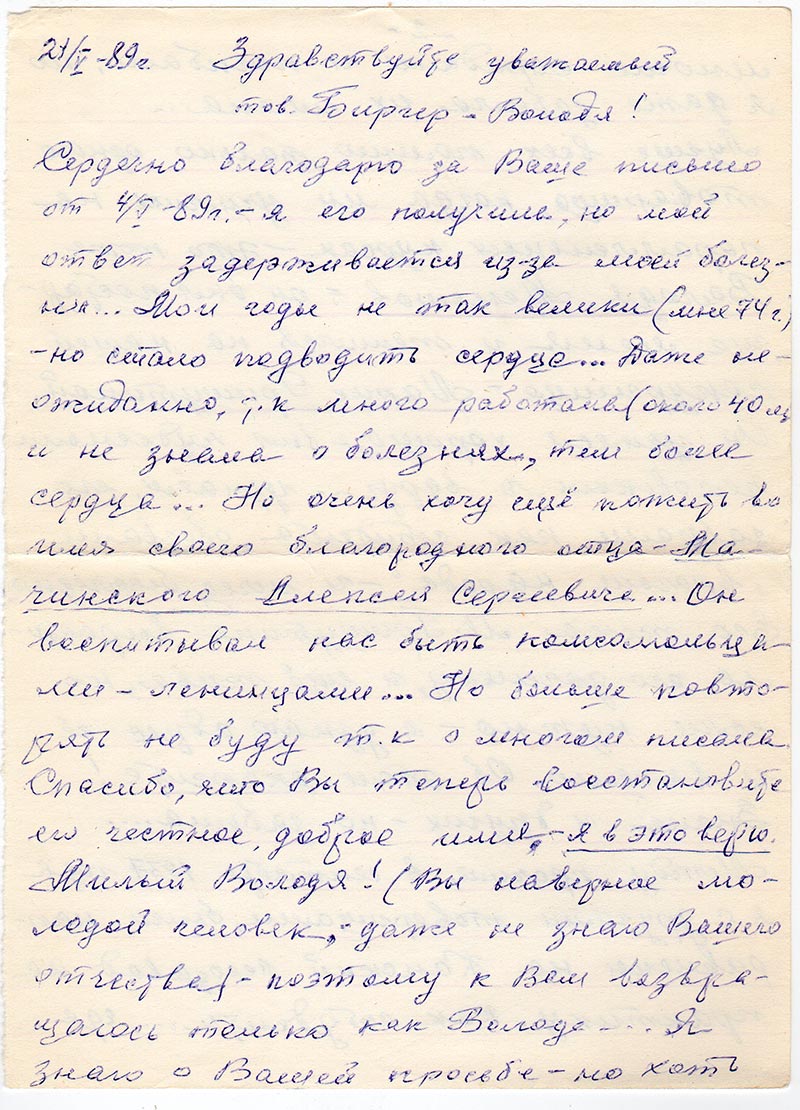 21/V-89г. Здравствуйте уважаемый
тов. - Володя!
Сердечно благодарю за Ваше письмо
от 4/V-89г. - я его получила, но мой
ответ задерживается из-за моей болез-
ни... Мои годы не так велики (мне 74 г.)
- но стало подводить сердце... Даже не-
ожиданно, т.к много работала (около 40 лет
и не знала о болезнях, тем более
сердца... Но очень хочу ещё пожить во
имя своего благородного отца - Ма-
чинского Алексея Сергеевича... Он
воспитывал нас быть комсомольца-
ми - ленинцами... Но больше повто-
рять не буду т.к о многом писала.
Спасибо, что Вы теперь восстановите
его честное, доброе имя, - я в это верю.
Милый Володя! (Вы наверное мо-
лодой человек, - даже не знаю Вашего
отчества) - поэтому к Вам возвра-
щаюсь только как Володе... Я
знаю о Вашей просьбе - но хоть